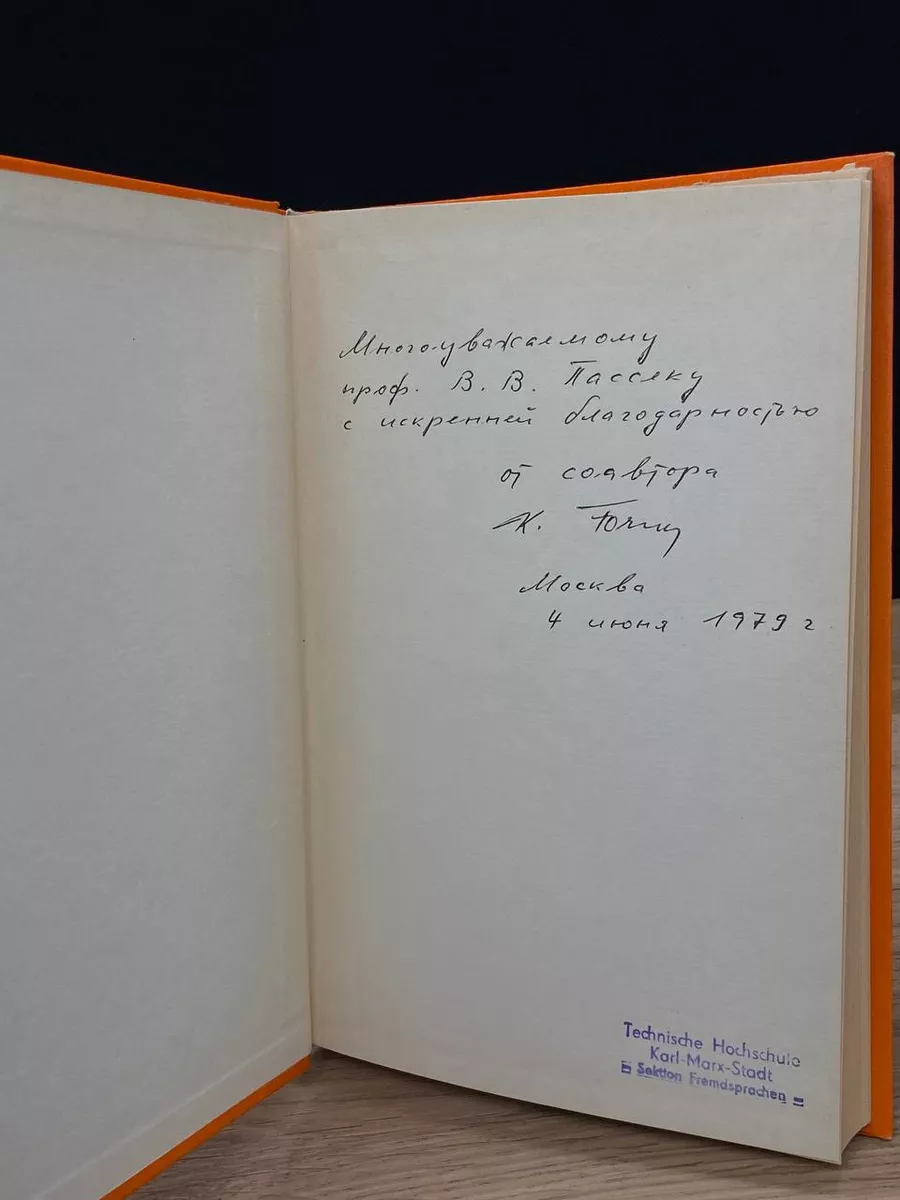 Многоуважаемому
проф. В. В. Пассеку
с искренней благодарностью
от соавтора
К.
Москва
4 июня 1979 г
Technische Hochschule
Karl-Marx-Stadt
Sektion Fremdsprachen